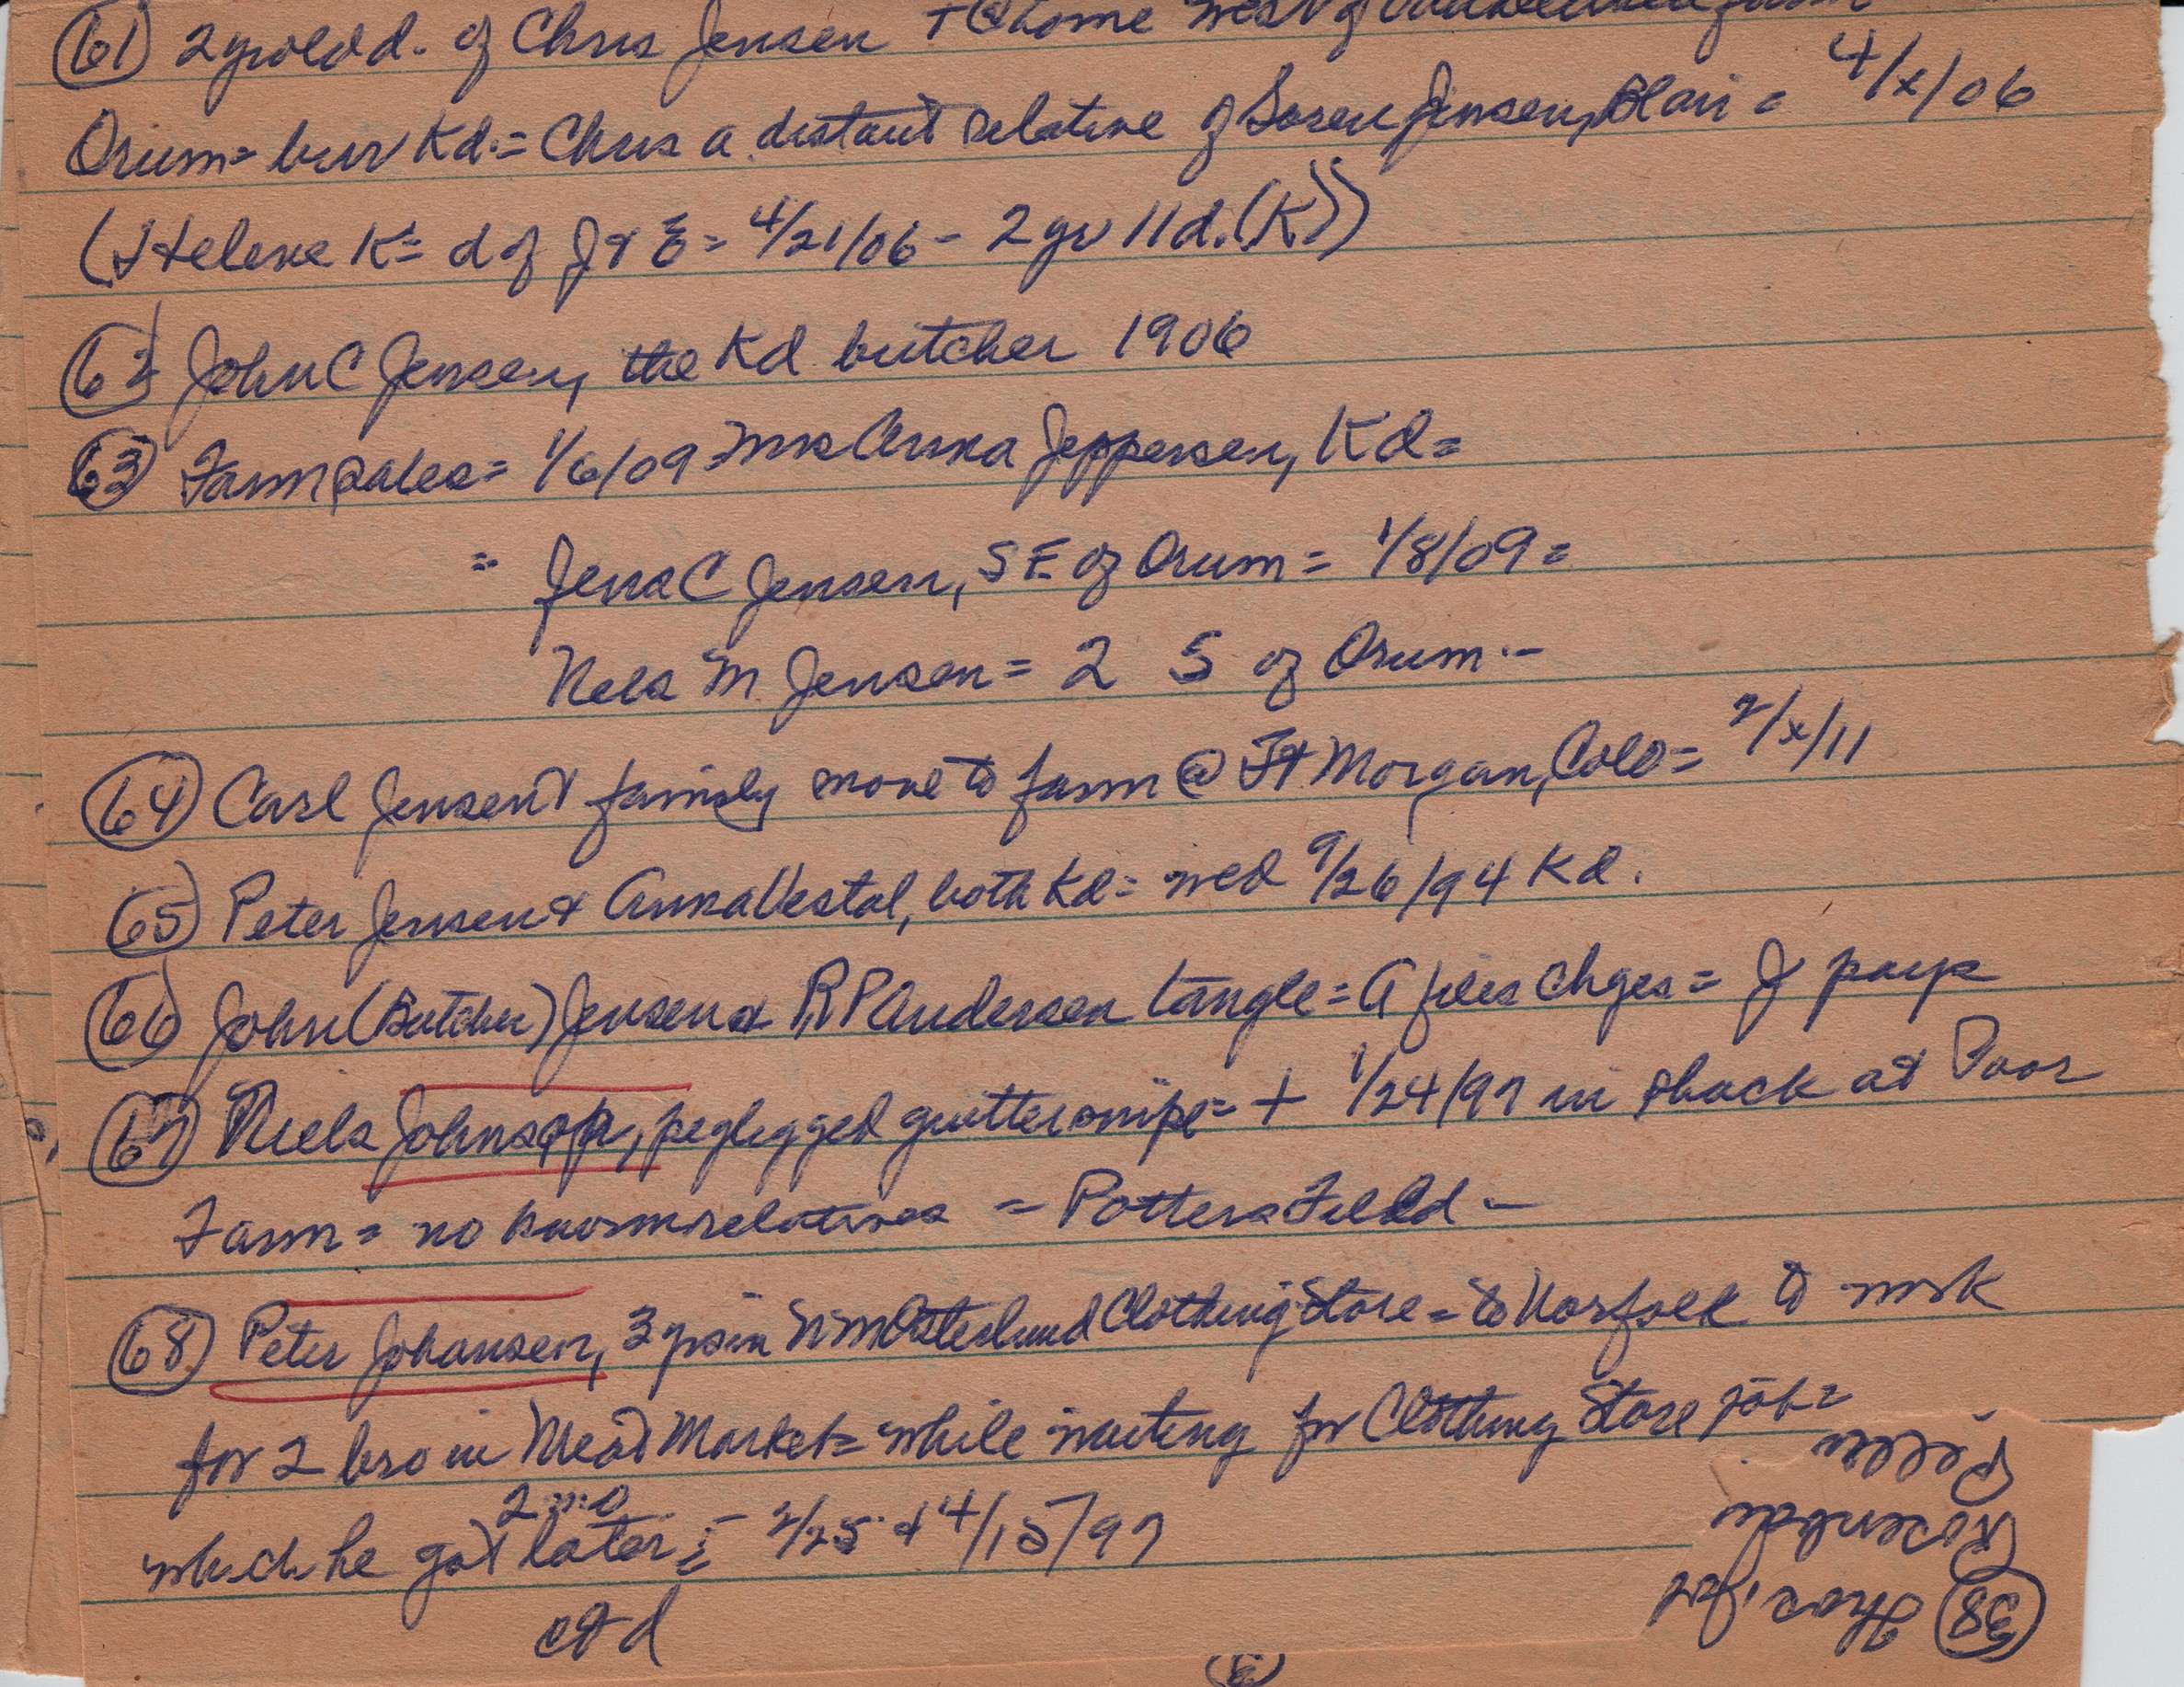 (61) 2 yr old d. of Chris Jensen + @ home west of
Orum = bur Kd. = Chris a distant relative of Soren Jensen, Blair = 4/x/06
(Helene K = d of J & E = 4/21/06 - 2 yr 11 d. (K))
(62) John C Jensen, the Kd butcher 1906
(63) Farm Sales = 1/6/09 = Mrs Anna Jeppersen, Kd =
= Jens C Jensen, SE of Orum = 1/8/09 =
Nels M. Jensen = 2 S of Orum. -
(64) Carl Jensen & family move to farm @ Ft Morgan, Colo = 2/x/11
(65) Peter Jensen & Anna Vestal, both Kd = wed 9/26/94 Kd.
(66) John (Butcher) Jensen & R P Andersen tangle = A files chges = J pays
(67) Niels Johnson, peglegged guttersnipe = + 1/24/97 in shack at Poor
Farm = no known relatives = Potters Field -
(68) Peter Johansen, 3 yrs in Wm Osterlund Clothing Store = to Norfolk to work
for 2 bro in Meat Market = while waiting for Clothing Store job =
which he got 2 mo later = 2/25 & 4/15/97
ctd
(38) Hans